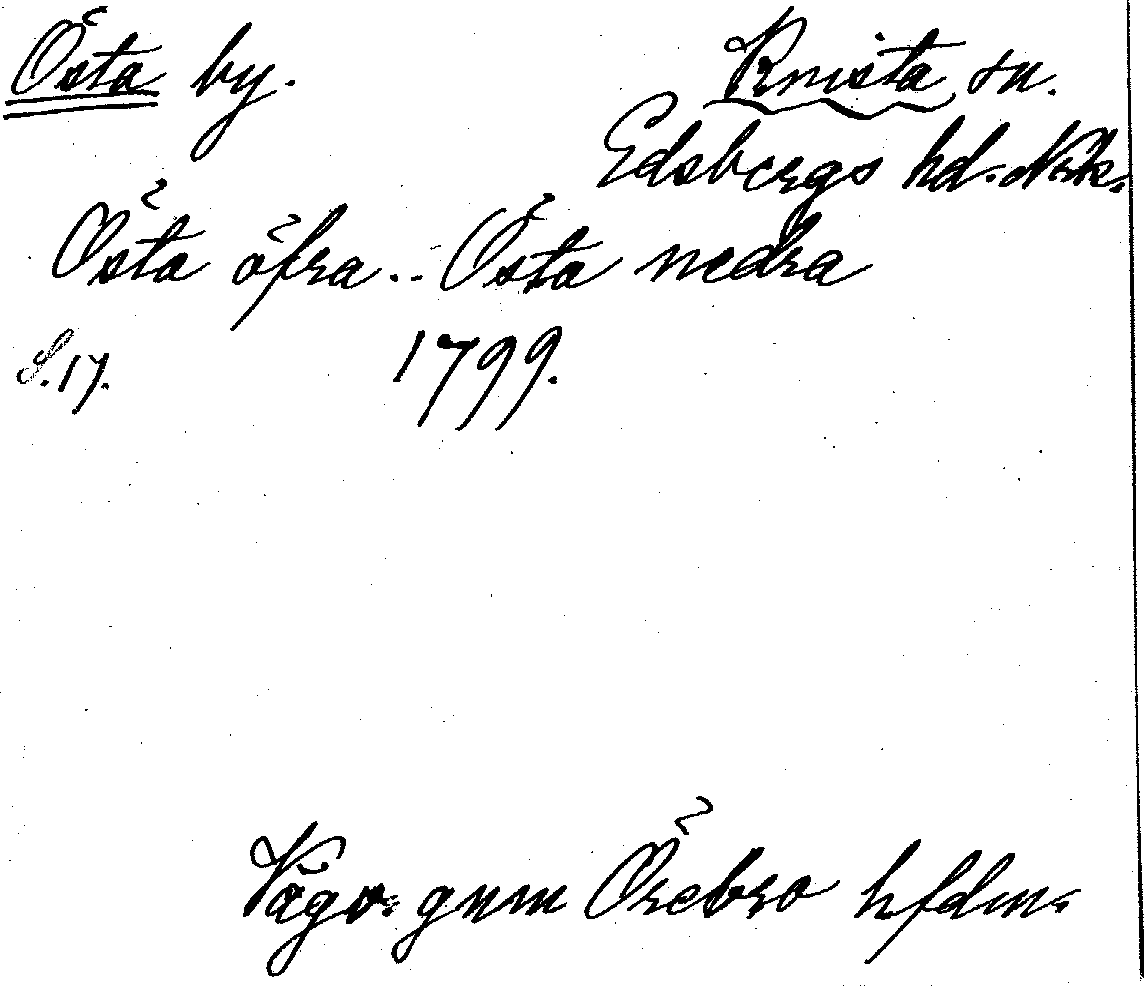 Östa by. Knista sn.
Edsbergs hd. Nrk.
Östa öfra .. Östa nedra
S. 17. 1799.
Vägv. gnm Örebro hfdm.